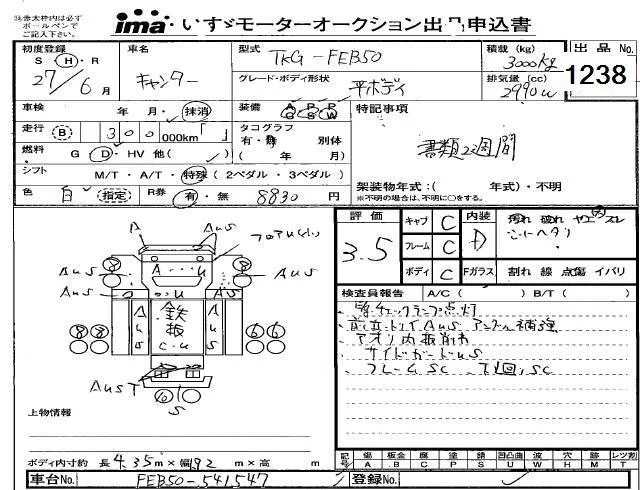 ima いすゞモーターオークション出品申込書
※赤太枠内は必ず
ボールペンで
ご記入下さい。
初度登録 S H R 27年 6月
車名 キャンター
型式 TKG-FEB50
グレード・ボディ形状 平ボディ
積載(kg) 3000kg
排気量(cc) 2990cc
出品No. 1238
車検 年 月・抹消
装備 AC PS PW
特記事項
書類2週間
走行 B 300 000km「 」
タコグラフ 有・無 別体 ( 年 月)
燃料 G D・HV 他( )
シフト M/T・A/T・特殊(2ペダル・3ペダル)
色 白 指定
R券 有・無 8830 円
架装物年式:( 年式)・不明
※不明の場合は、不明に○をする。
評価 3.5
キャブ C
フレーム C
ボディ C
内装 D
汚れ 破れ ヤニ スレ
Fガラス 割れ 線 点傷 イバリ
検査員報告 A/C( ) B/T( )
チェックランプ点灯
アングル補強
アオリ内板削れ
サイドガードUS
フレームSC 下回りSC
A AUS
A・・・U
AUS
AUS
鉄板
C.U
AUS
AUS
AUST
S
8 8
6 6
上物情報
ボディ内寸約 長 4.35m×幅 1.92m×高 m
記号 傷 A 板金 B 腐 C 塗 P 錆 S 凹凸曲 U 波 W 穴 H 跡 M レツ割 T
車台No. FEB50-541547
登録No.